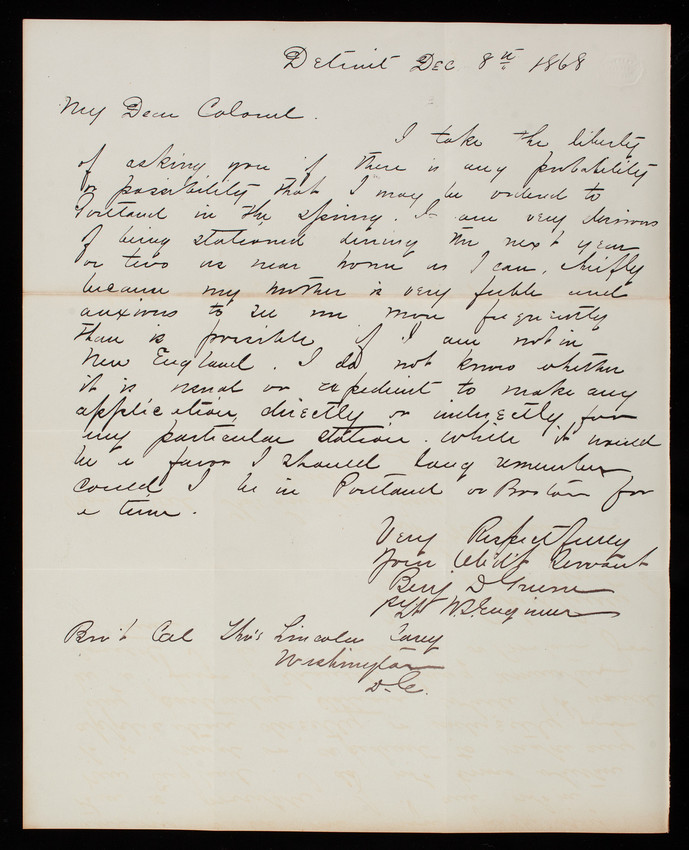 Detroit Dec 8th 1868
My Dear Colonel.
I take the liberty
of asking you if there is any probability
or possibility that I may be ordered to
Portland in the Spring. I am very desirous
of being stationed during the next year
or two as near home as I can, chiefly
because my mother is very feeble and
anxious to see me more frequently
than is possible if I am not in
New England. I do not know whether
it is usual or expedient to make any
application, directly or indirectly, for
any particular station. While it would
be a favor I should long remember
could I be in Portland or Boston for
a time.
Very Respectfully
Your Obd't Servant
Benj D Greene
Lt U.S. Engineers
Brv't Col Tho's Lincoln Casey
Washington
D.C.